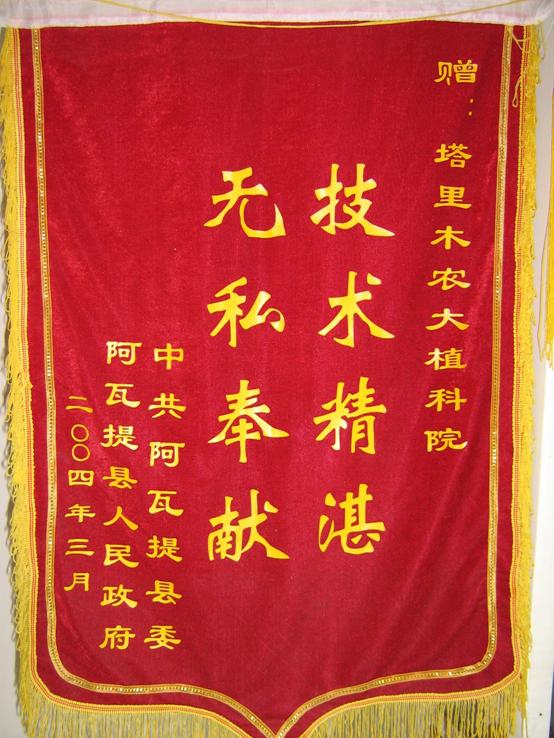 赠：塔里木农大植科院
技术精湛
无私奉献
中共阿瓦提县委
阿瓦提县人民政府
二〇〇四年三月